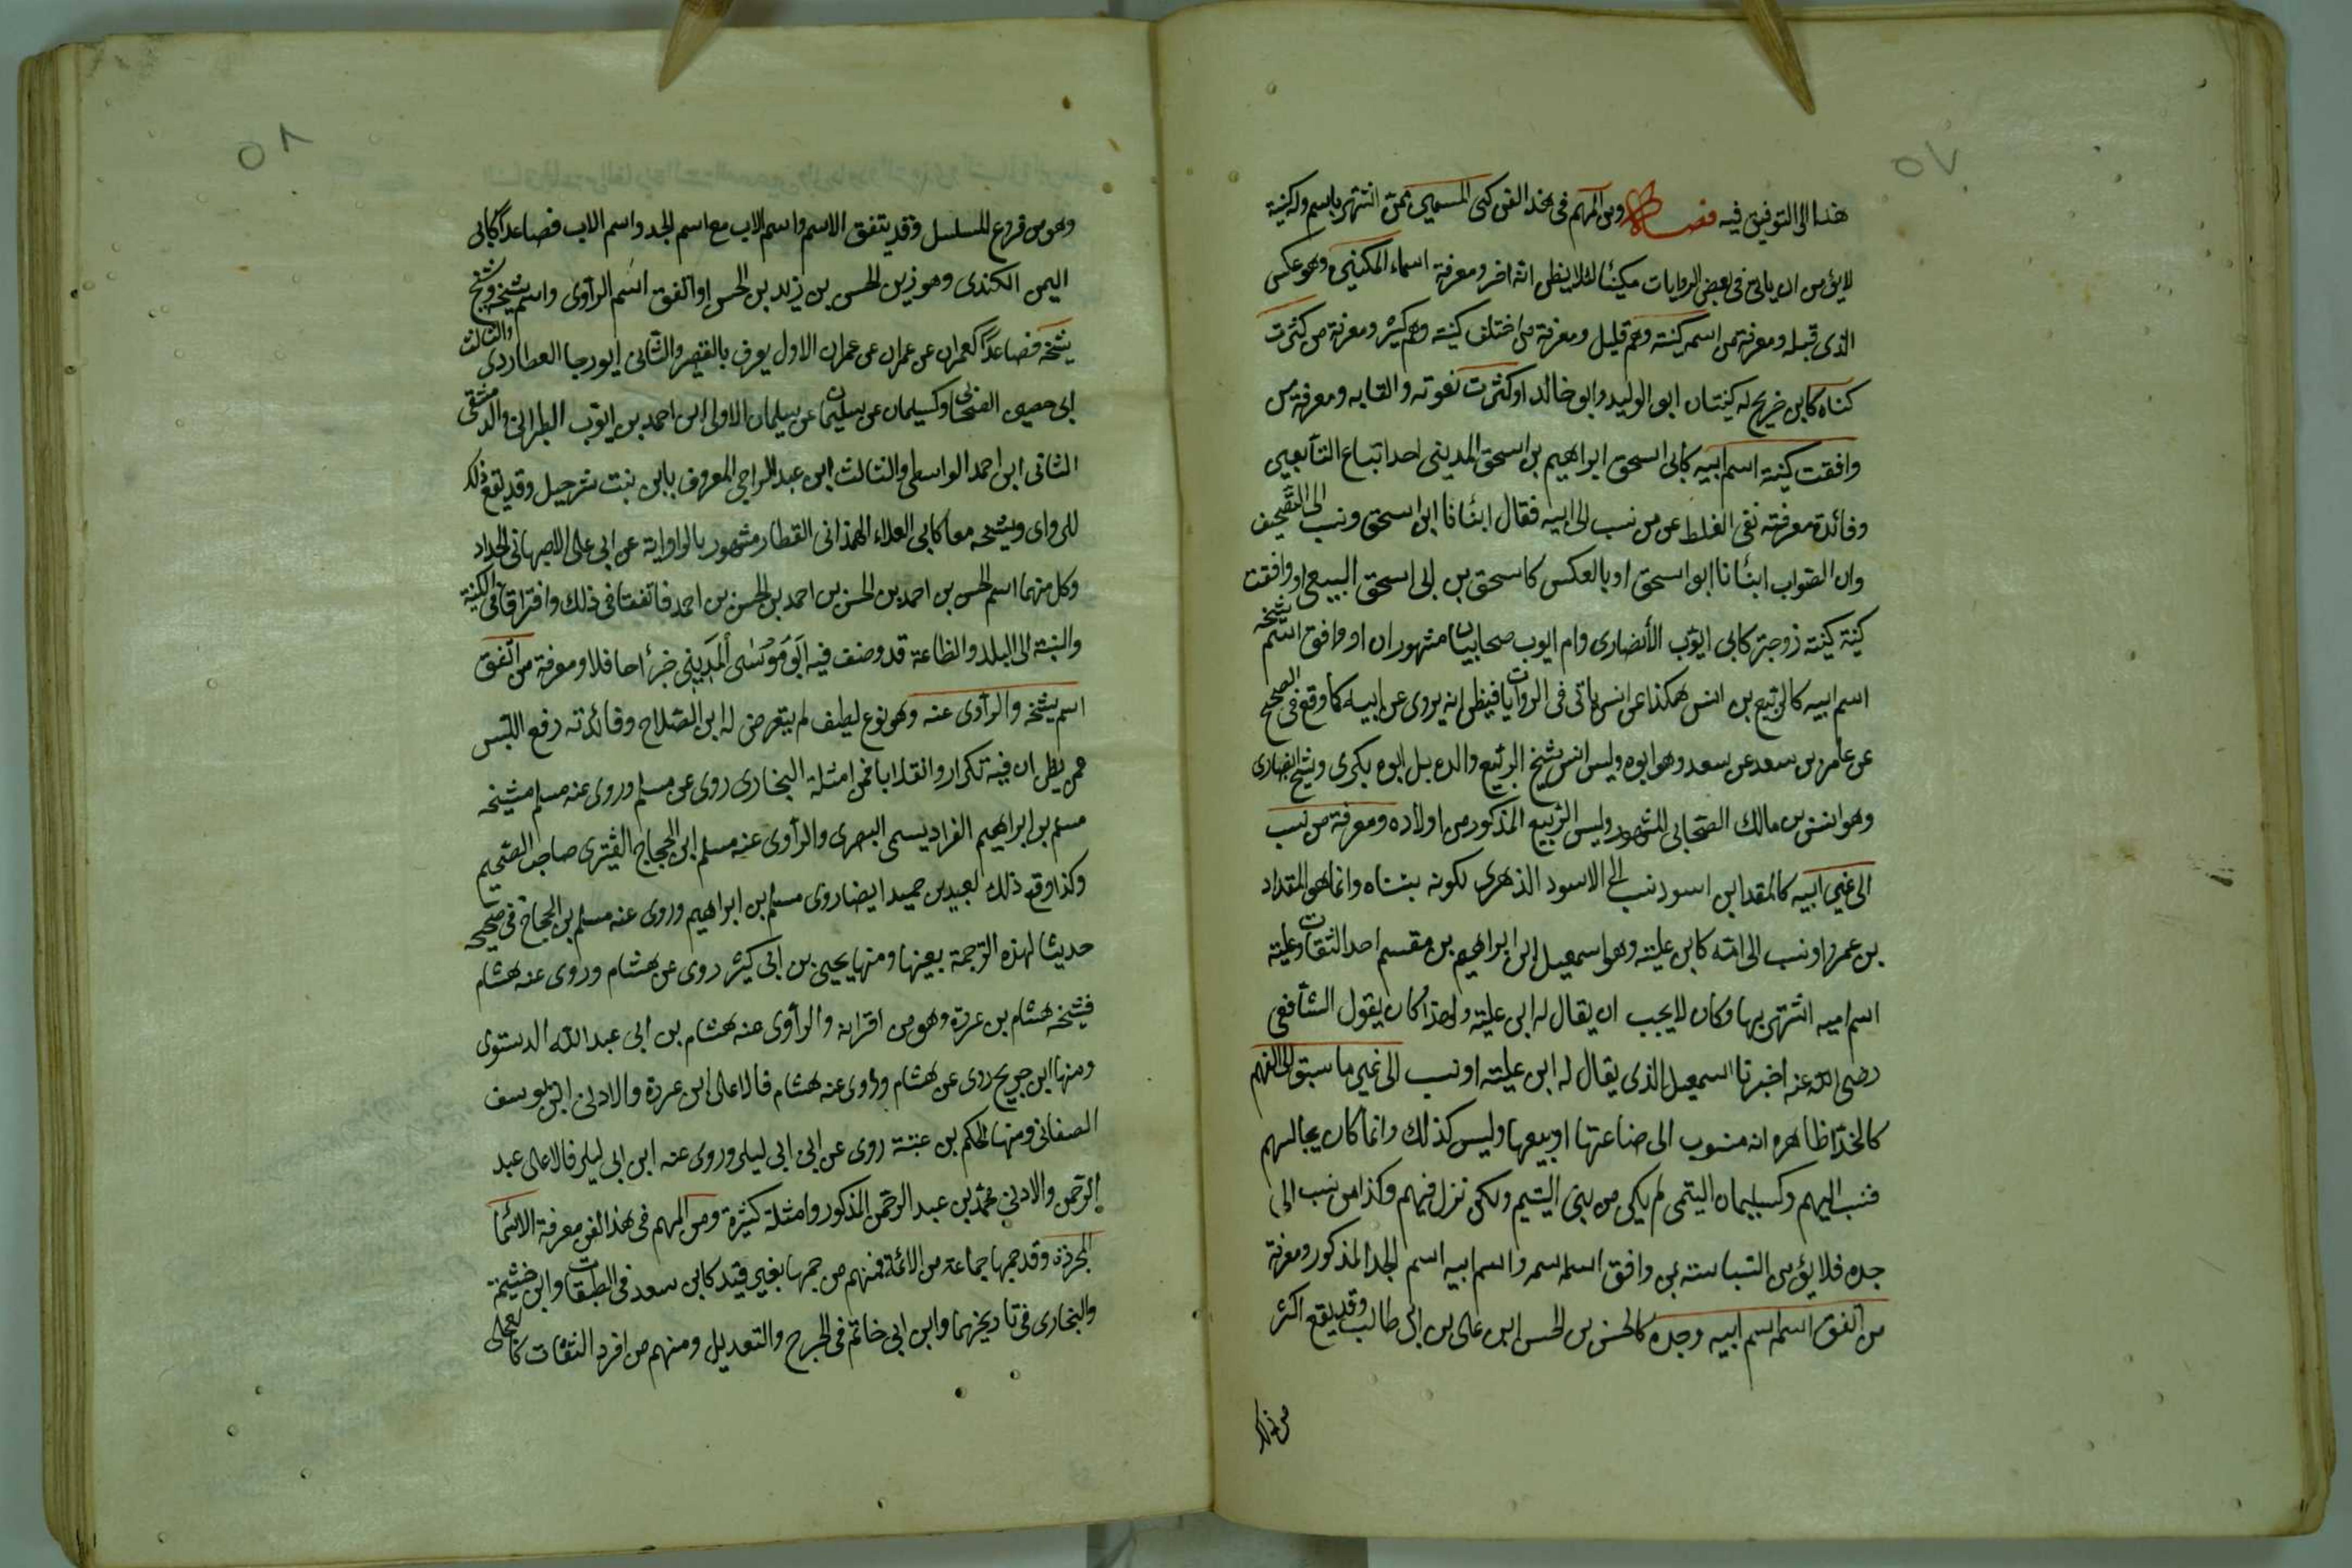 ٥٧
هذا الى التوفيق فيه فصل ومن المهم فى هذا الفن كنى المسمين ممن اشتهر باسم وله كنية
لايؤمن ان ياتى فى بعض الروايات مكنيا لئلا يظن انه اخر ومعرفة اسماء المكنين وهو عكس
الذى قبله ومعرفة من اسمه كنيته وهم قليل ومعرفة من اختلف كنيته وهم كثير ومعرفة من كثرت
كناه كابن جريج له كنيتان ابو الوليد وابو خالد او كثرت نعوته والقابه ومعرفة من
وافقت كنيته اسم ابيه كابى اسحق ابراهيم بن اسحق المدينى احد اتباع التابعين
وفائدة معرفته نفى الغلط عن من نسب الى ابيه فقال انبأنا ابن اسحق ونسب الى التصحيف
وان الصواب انبأنا ابو اسحق او بالعكس كاسحق بن ابى اسحق السبيعى او وافقت
كنية كنيته زوجته كابى ايوب الأنصارى وام ايوب صحابيان مشهوران او وافق اسم شيخه
اسم ابيه كالربيع بن انس هكذا عن انس ياتى فى الروايات فيظن انه يروى عن ابيه كما وقع فى الصحيح
عن عامر بن سعد عن سعد وهو ابوه وليس انس شيخ الربيع والده بل ابوه بكرى وشيخه انصارى
وهو انس بن مالك الصحابى المشهور وليس الربيع المذكور من اولاده ومعرفة من نسب
الى غير ابيه كالمقداد بن اسود نسب الى الاسود الزهرى لكونه تبناه وانما هو المقداد
بن عمرو او نسب الى امه كابن علية وهو اسمعيل ابن ابراهيم بن مقسم احد الثقات وعلية
اسم امه اشتهر بها وكان لايحب ان يقال له ابن علية ولهذا كان يقول الشافعى
رضى الله عنه اخبرنا اسمعيل الذى يقال له ابن علية او نسب الى غير ما سبق الى الفهم
كالحذا ظاهره انه منسوب الى صناعتها او بيعها وليس كذلك وانما كان يجالسهم
فنسب اليهم وكسليمان التيمى لم يكن من بنى التيم ولكن نزل فيهم وكذا من نسب الى
جده فلا يؤمن التباسه بمن وافق اسمه اسمه واسم ابيه اسم الجد المذكور ومعرفة
من اتفق اسمه اسم ابيه وجده كالحسن بن الحسن ابن على بن ابى طالب وقد يقع اكثر
من ذلك
٥٨
وهو من فروع المسلسل وقد يتفق الاسم واسم الاب مع اسم الجد واسم الاب فصاعدا كابى
اليمن الكندى وهو زيد بن الحسن بن زيد بن الحسن او اتفق اسم الراوى واسم شيخه وشيخ
شيخه فصاعدا كعمران عن عمران عن عمران الاول يعرف بالقصير والثانى ابو رجا العطاردى والثالث
ابن حصين الصحابى وكسليمان عن سليمان عن سليمان الاول ابن احمد بن ايوب الطبرانى والدمشقى
الثانى ابن احمد الواسطى والثالث ابن عبد الراجى المعروف بابن بنت شرحبيل وقد يقع ذلك
للرواى وشيخه معا كابى العلاء الهمذانى القطار مشهور بالواواية عن ابى على الاصبهانى الحداد
وكل منهما اسم الحسن بن احمد بن الحسن بن احمد بن الحسن بن احمد فاتفقا فى ذلك وافترقا فى الكنية
والنسبة الى البلد والصناعة قد وصنف فيه ابو موسى المدينى جزءا حافلا ومعرفة من اتفق
اسم شيخه والراوى عنه وهو نوع لطيف لم يتعرض له ابن الصلاح وفائدته رفع اللبس
عن يظن ان فيه تكرار وانقلابا فمن امثلة البخارى روى عن مسلم وروى عنه مسلم فشيخه
مسلم بن ابراهيم الفراديسى البصرى والراوى عنه مسلم ابن الحجاج القشيرى صاحب الصحيح
وكذا وقع ذلك لعبد بن حميد ايضا روى مسلم بن ابراهيم وروى عنه مسلم بن الحجاج فى صحيحه
حديثا لهذه الترجمة بعينها ومنها يحيى بن ابى كثير روى عن هشام وروى عنه هشام
فشيخه هشام بن عروة وهو من اقرانه والراوى عنه هشام بن ابى عبد الله الدستوى
ومنها ابن جريج روى عن هشام وروى عنه هشام فالاعلى ابن عروة والادنى ابن يوسف
الصنعانى ومنها الحكم بن عتبة روى عن ابن ابى ليلى وروى عنه ابن ابى ليلى فالاعلى عبد
الرحمن والادنى محمد بن عبد الرحمن المذكور وامثلة كثيرة ومن المهم فى هذا الفن معرفة الاسما
المجردة وقد جمعها جماعة من الائمة فمنهم من جمعها بغير قيد كابن سعد فى الطبقات وابن خيثمة
والبخارى فى تاريخهما وابن ابى حاتم فى الجرح والتعديل ومنهم من افرد الثقات كالعجلى